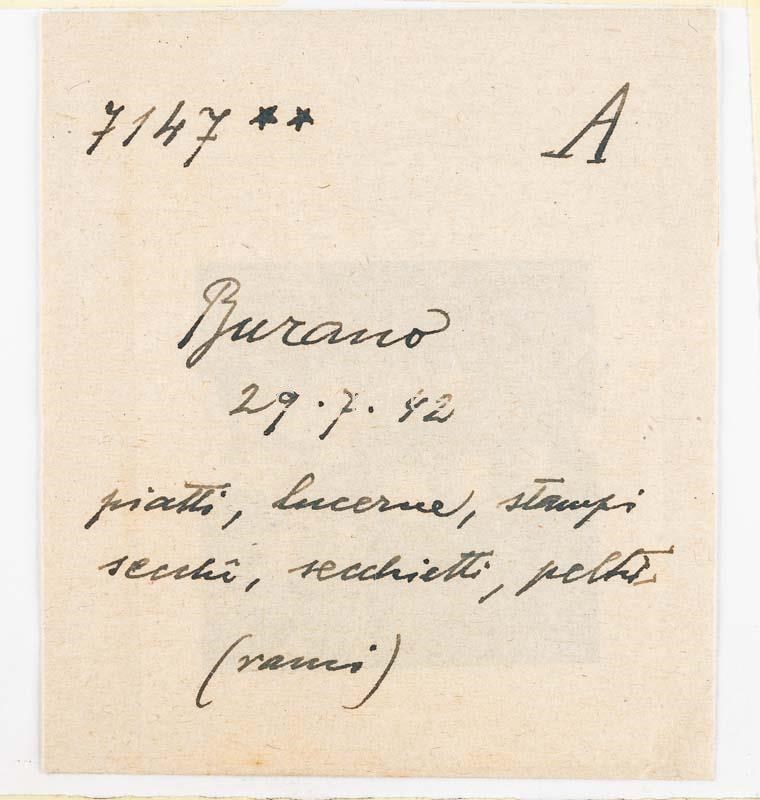 7147 ** A
Burano
29.7.42
piatti, lucerne, stampi
secchi, secchietti, peltri
(rami)